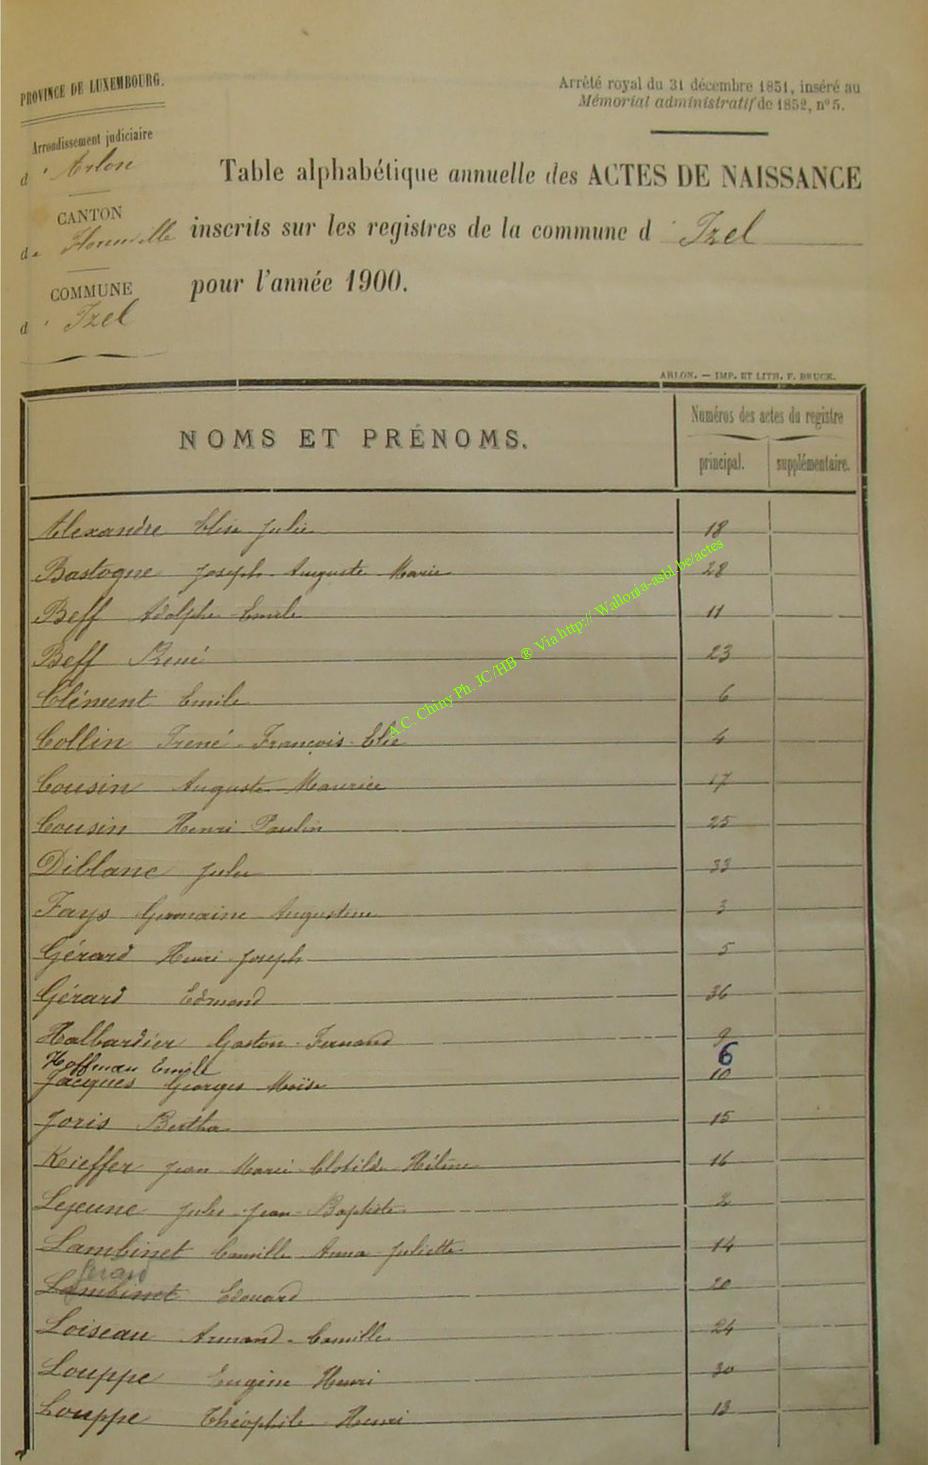 PROVINCE DE LUXEMBOURG.
Arrondissement judiciaire
d' Arlon
CANTON
de Florenville
COMMUNE
d' Izel
Arrêté royal du 31 décembre 1851, inséré au
Mémorial administratif de 1852, n° 5.
Table alphabétique annuelle des ACTES DE NAISSANCE
inscrits sur les registres de la commune d' Izel
pour l'année 1900.
ARLON. — IMP. ET LITH. F. BRUCK.
NOMS ET PRÉNOMS.
Numéros des actes du registre
principal. supplémentaire.
Alexandre Elise Julie 18
Bastogne Joseph-Auguste-Marie 28
Beff Adolphe-Emile 11
Beff René 23
Clément Emile 6
Collin Irené-François-Elie 4
Cousin Auguste-Maurice 17
Cousin Henri Paulin 25
Diblanc Jules 33
Fays Germaine Augustine 3
Gérard Henri-Joseph 5
Gérard Edmond 36
Halbardier Gaston-Fernand 9
Hoffman Emile 6
Jacques Georges Moïse 10
Joris Bertha 15
Kieffer Jean-Marie-Clotilde-Hélène 16
Lejeune Jules-Jean-Baptiste 2
Lambinet Camille Anna-Juliette 14
Gérard
Lambinet Edouard 20
Loiseau Armand-Camille 24
Louppe Eugène Henri 30
Louppe Théophile-Henri 13
A.C. Chiny Ph. JC/HB ® Via http:// Wallonia-asbl.be/actes